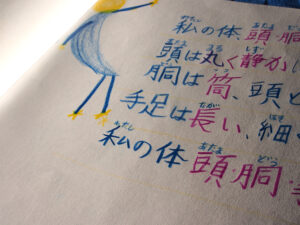 私の体 頭・胴
頭は丸く静か
胴は筒、頭と
手足は長い、細
私の体 頭・胴